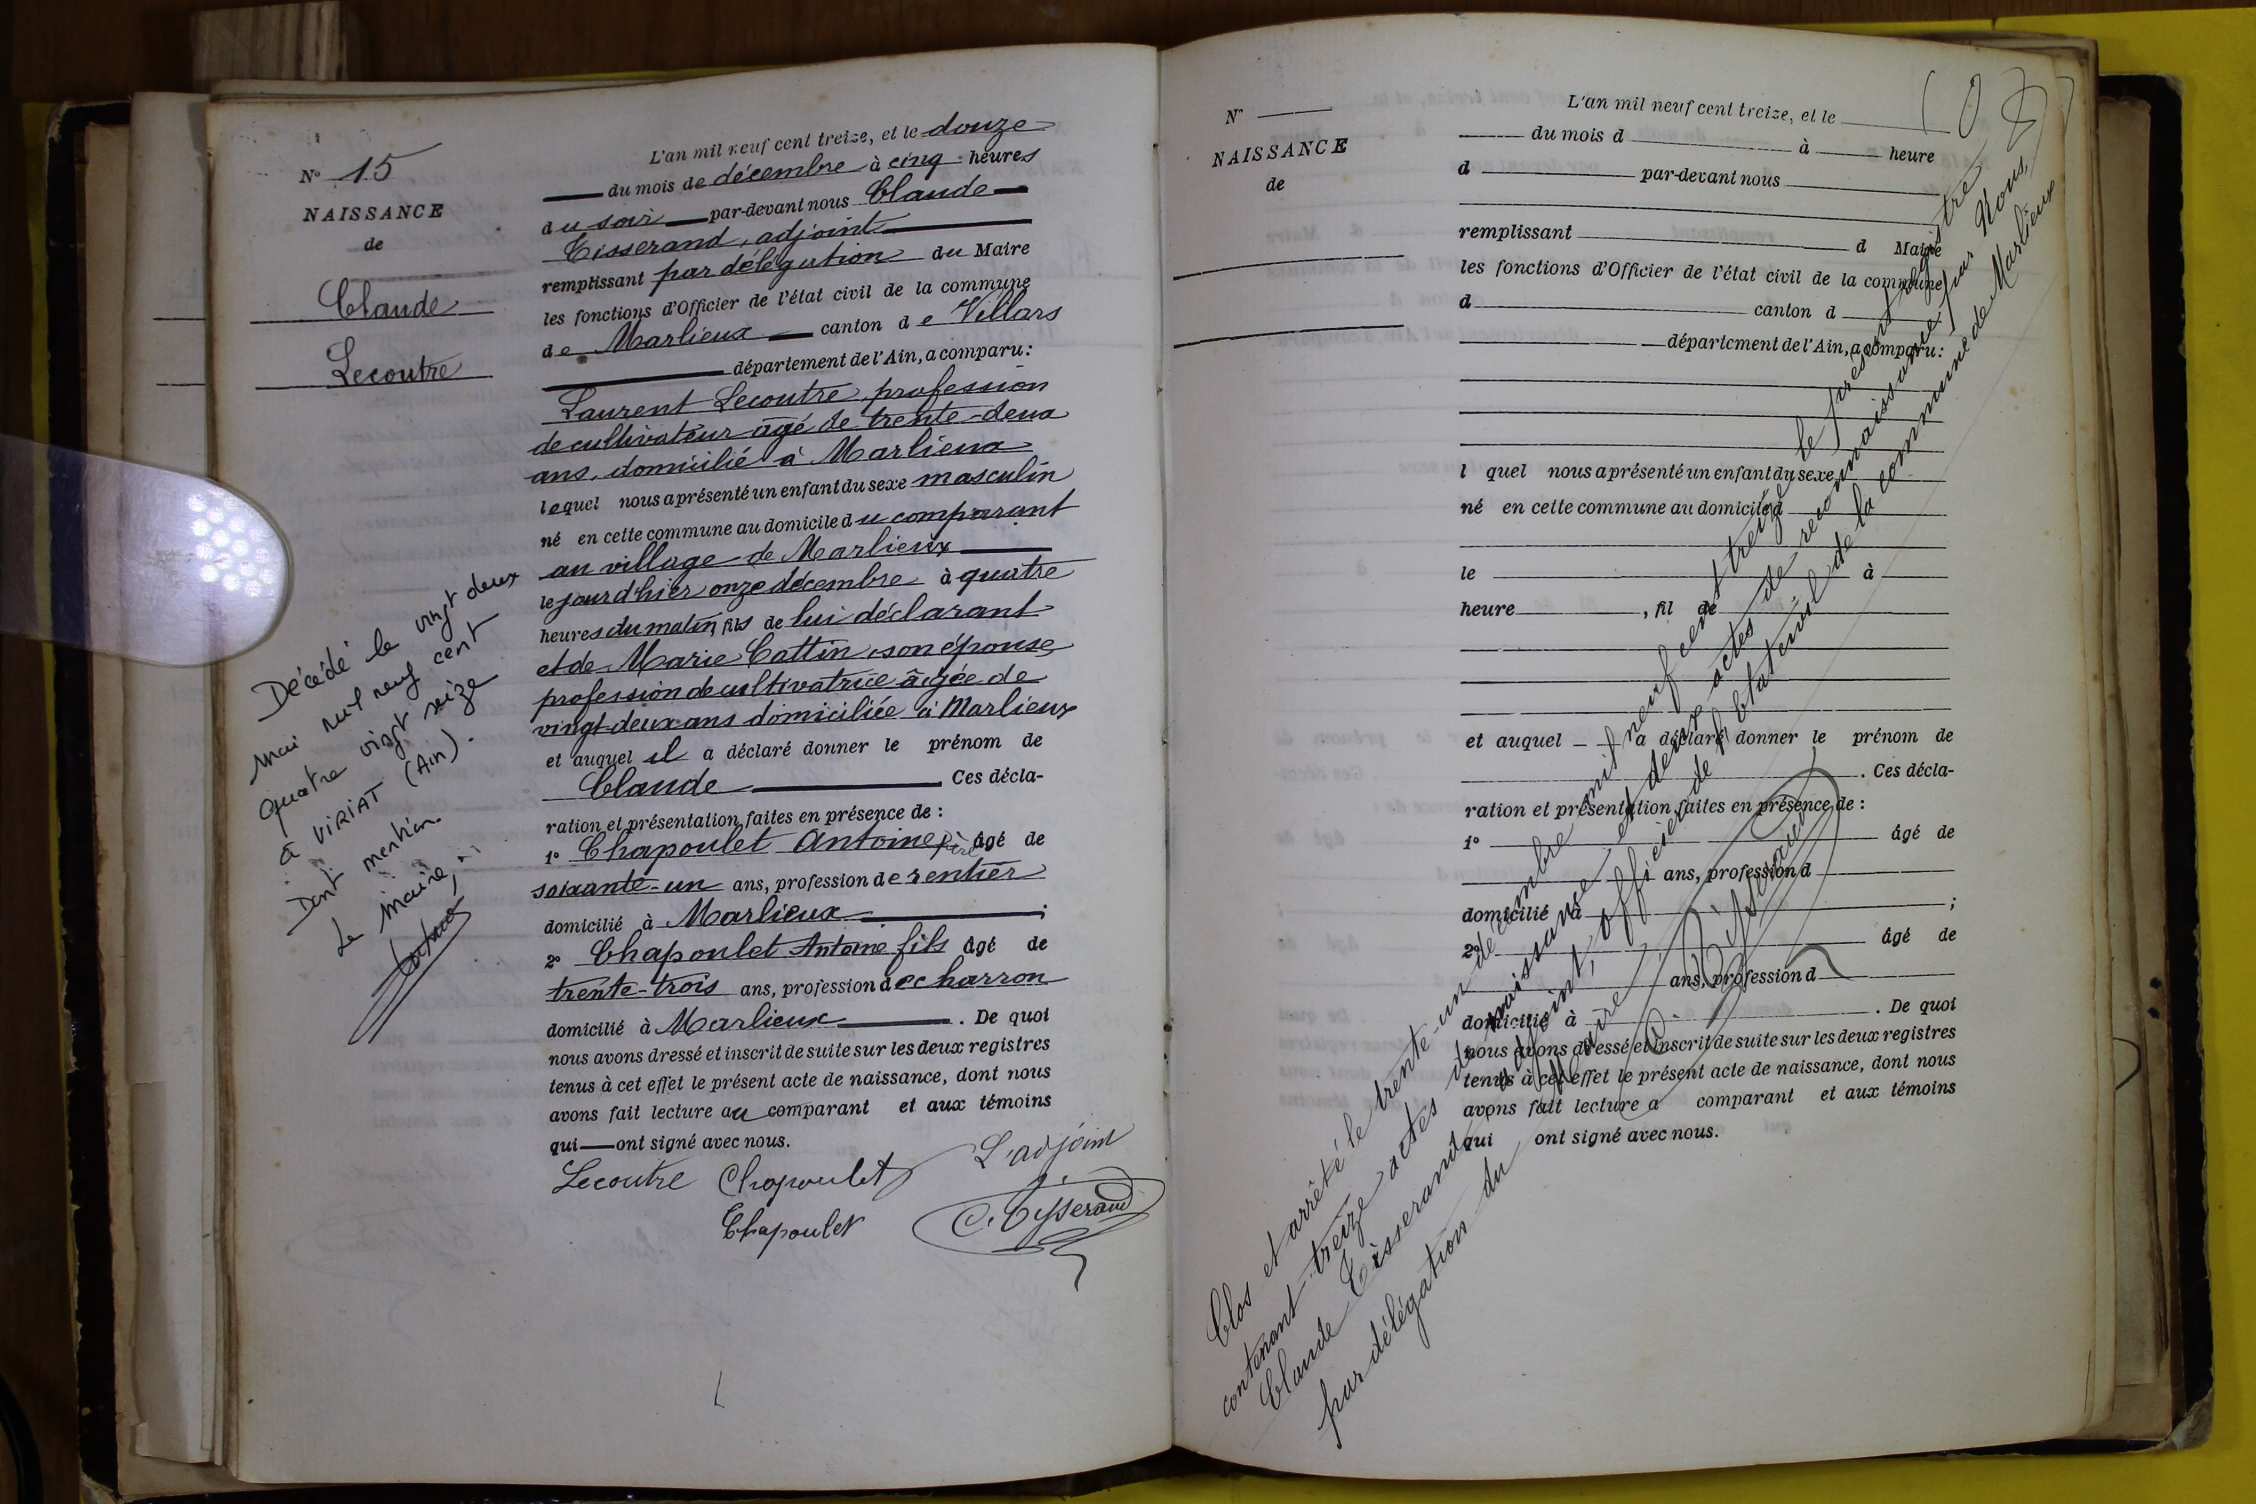 N° 15
NAISSANCE
de
Claude
Lecoutre
L'an mil neuf cent treize, et le douze
du mois de décembre à cinq heures
du soir par-devant nous Claude
Tisserand, adjoint
remplissant par délégation du Maire
les fonctions d'Officier de l'état civil de la commune
de Marlieux canton de Villars
département de l'Ain, a comparu :
Laurent Lecoutre, profession
de cultivateur âgé de trente-deux
ans, domicilié à Marlieux
lequel nous a présenté un enfant du sexe masculin
né en cette commune au domicile du comparant
au village de Marlieux
le jour d'hier onze décembre à quatre
heures du matin, fils de lui déclarant
et de Marie Cottin, son épouse,
profession de cultivatrice âgée de
vingt-deux ans domiciliée à Marlieux
et auquel il a déclaré donner le prénom de
Claude Ces décla-
ration et présentation faites en présence de :
1° Chapoulet Antoine père âgé de
soixante-un ans, profession de rentier
domicilié à Marlieux ;
2° Chapoulet Antoine fils âgé de
trente-trois ans, profession de charron
domicilié à Marlieux . De quoi
nous avons dressé et inscrit de suite sur les deux registres
tenus à cet effet le présent acte de naissance, dont nous
avons fait lecture au comparant et aux témoins
qui ont signé avec nous.
Lecoutre Chapoulet L'adjoint
Chapoulet C. Tisserand
Décédé le vingt deux
mai mil neuf cent
quatre vingt seize
à VIRIAT (Ain).
Dont mention.
Le Maire,
N°
NAISSANCE
de
L'an mil neuf cent treize, et le
du mois d à heure
d par-devant nous
remplissant d Maire
les fonctions d'Officier de l'état civil de la commune
d canton d
département de l'Ain, a comparu :
l quel nous a présenté un enfant du sexe
né en cette commune au domicile d
le à
heure , fil de
et auquel a déclaré donner le prénom de
. Ces décla-
ration et présentation faites en présence de :
1° âgé de
ans, profession d
domicilié à ;
2° âgé de
ans, profession d
domicilié à . De quoi
nous avons dressé et inscrit de suite sur les deux registres
tenus à cet effet le présent acte de naissance, dont nous
avons fait lecture a comparant et aux témoins
qui ont signé avec nous.
Clos et arrêté le trente-un décembre mil neuf cent treize le présent registre
contenant treize actes de naissance et deux actes de reconnaissance, par Nous,
Claude Tisserand, adjoint, officier de l'état civil de la commune de Marlieux
par délégation du Maire.
C. Tisserand